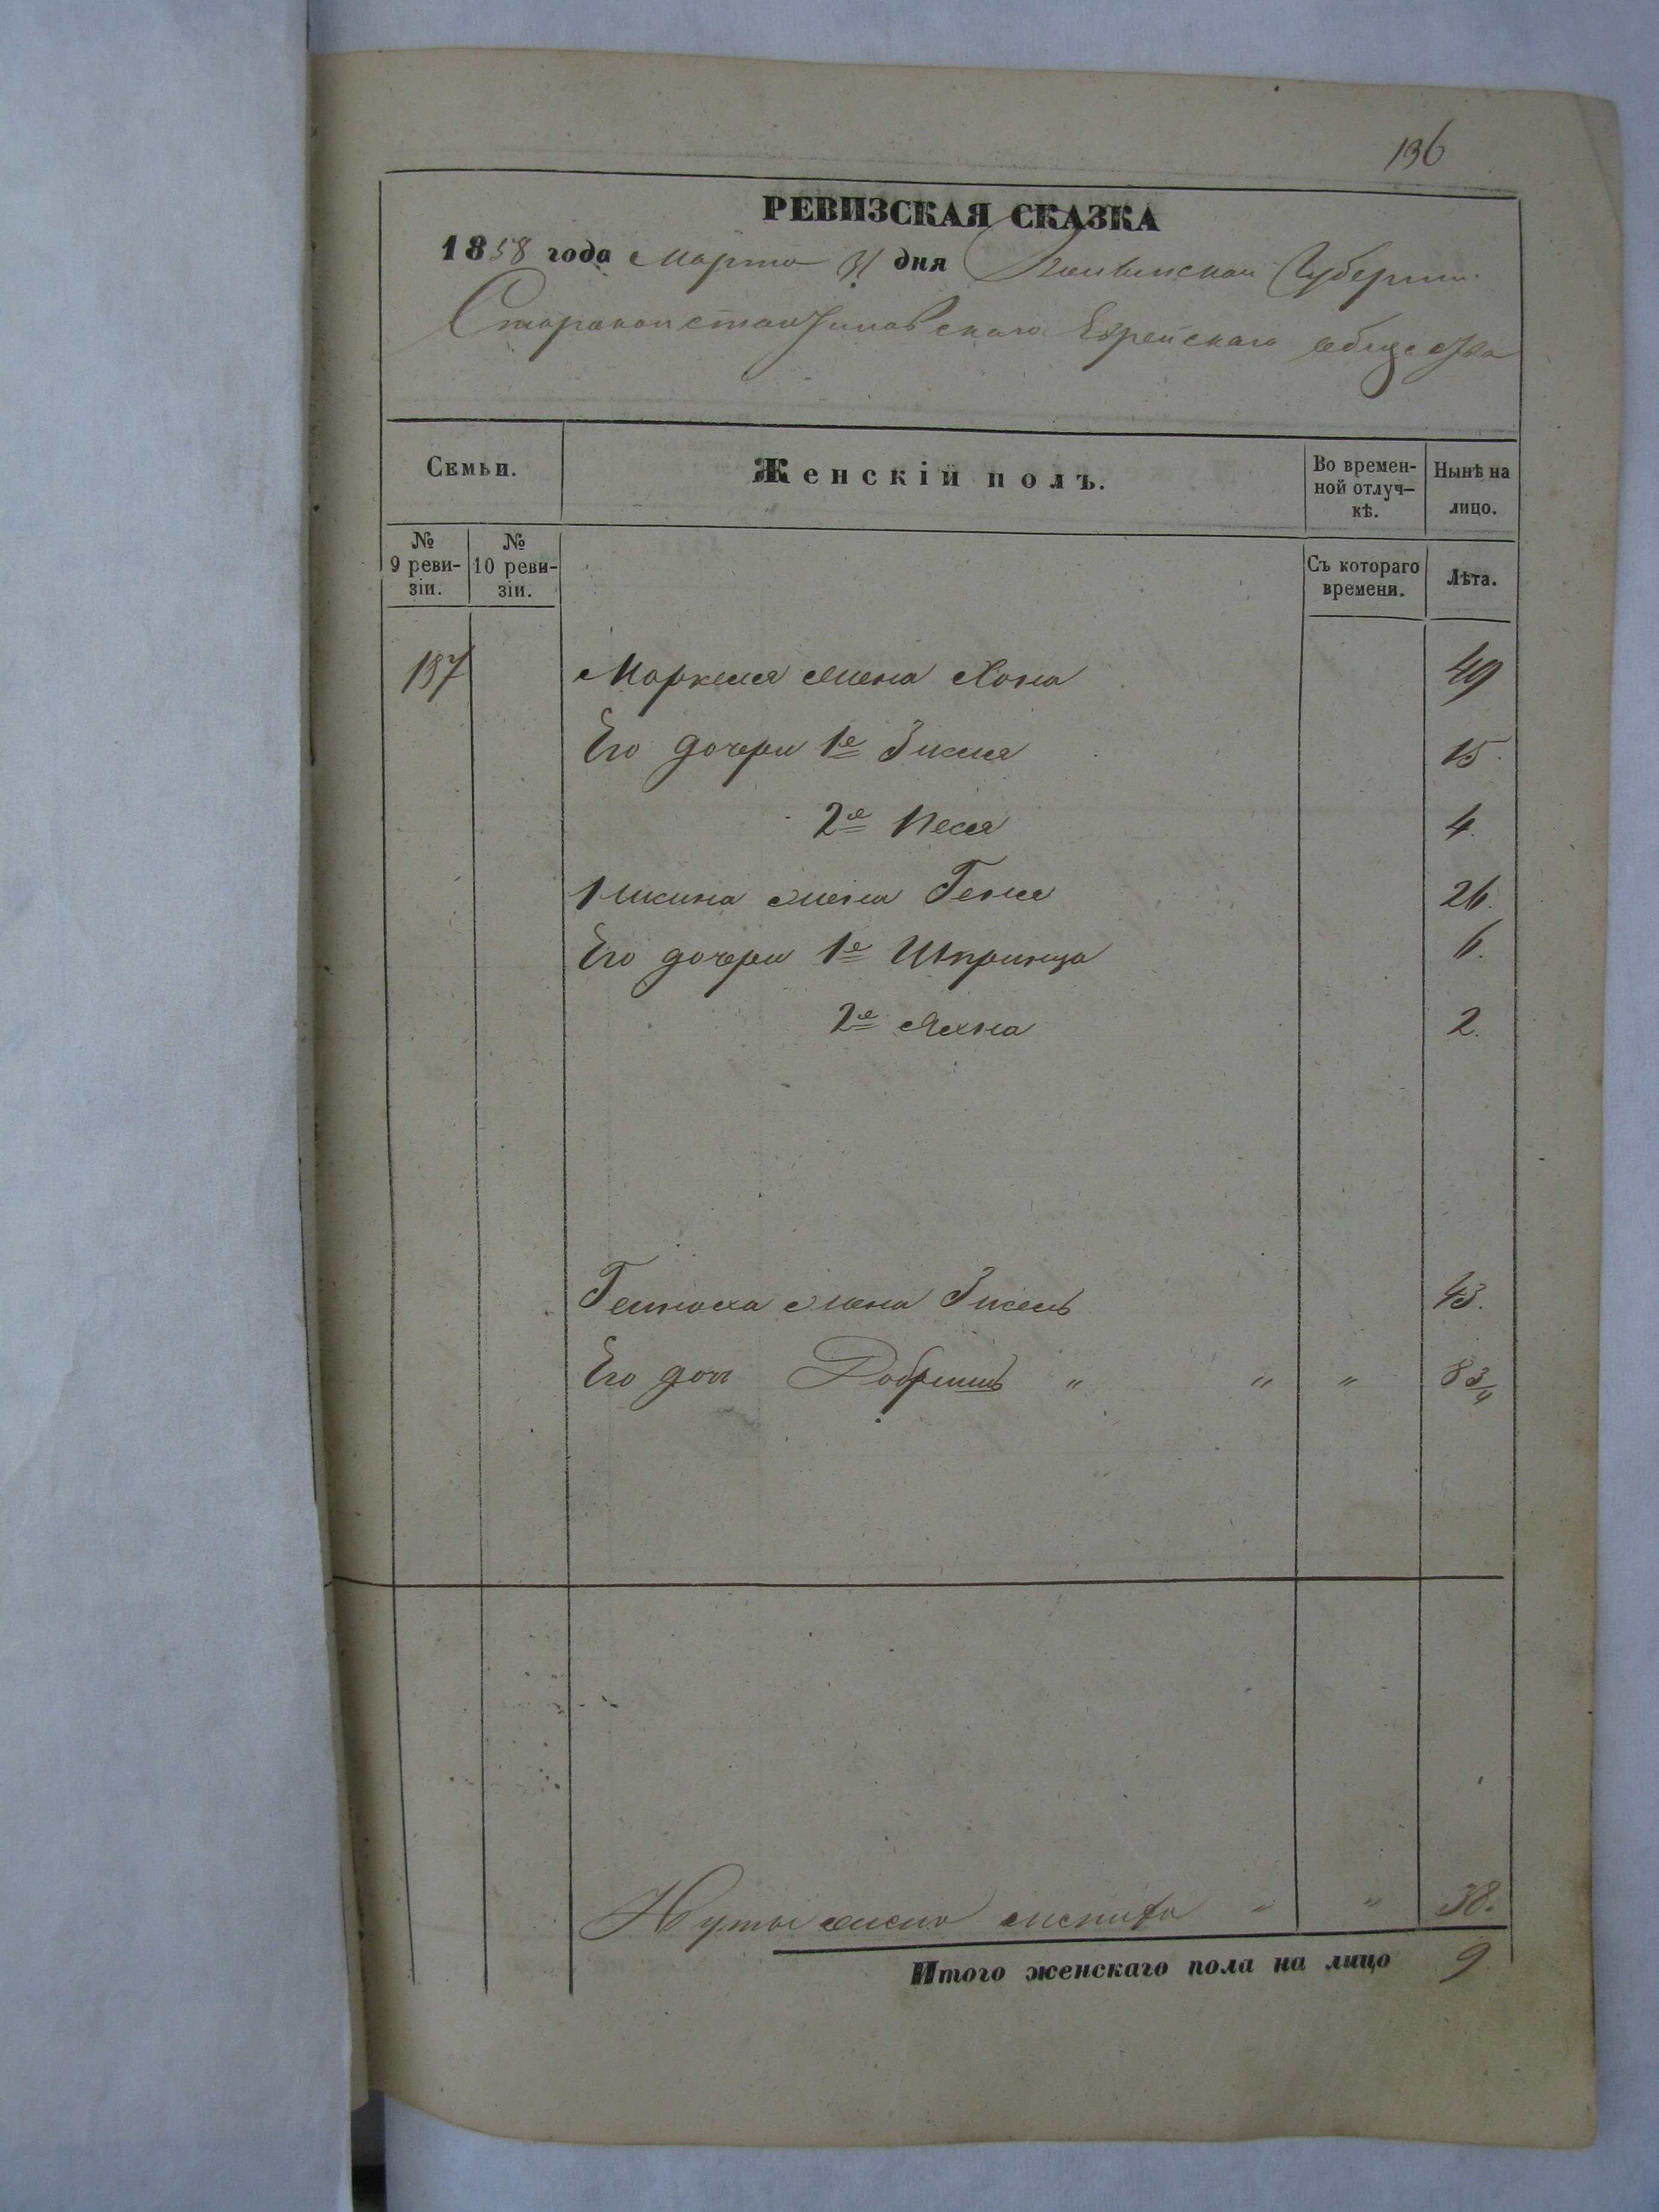 136
РЕВИЗСКАЯ СКАЗКА
1858 года Марта 31 дня Волынской Губернiи
Староконстантиновскаго Еврейскаго общества
Семьи. Женскiй полъ. Во времен-ной отлуч-кѣ. Нынѣ на лицо.
№ 9 реви-зiи. № 10 реви-зiи. Съ котораго времени. Лѣта.
197 жена Хона 49
Его дочери 1е Зисля 15.
2е Песя 4.
жена Геня 26.
Его дочери 1е Шпринца 6.
2е Яхна 2.
жена Зисель 43.
Его доч " " " 8 3/4
жена " " 38.
Итого женскаго пола на лицо 9